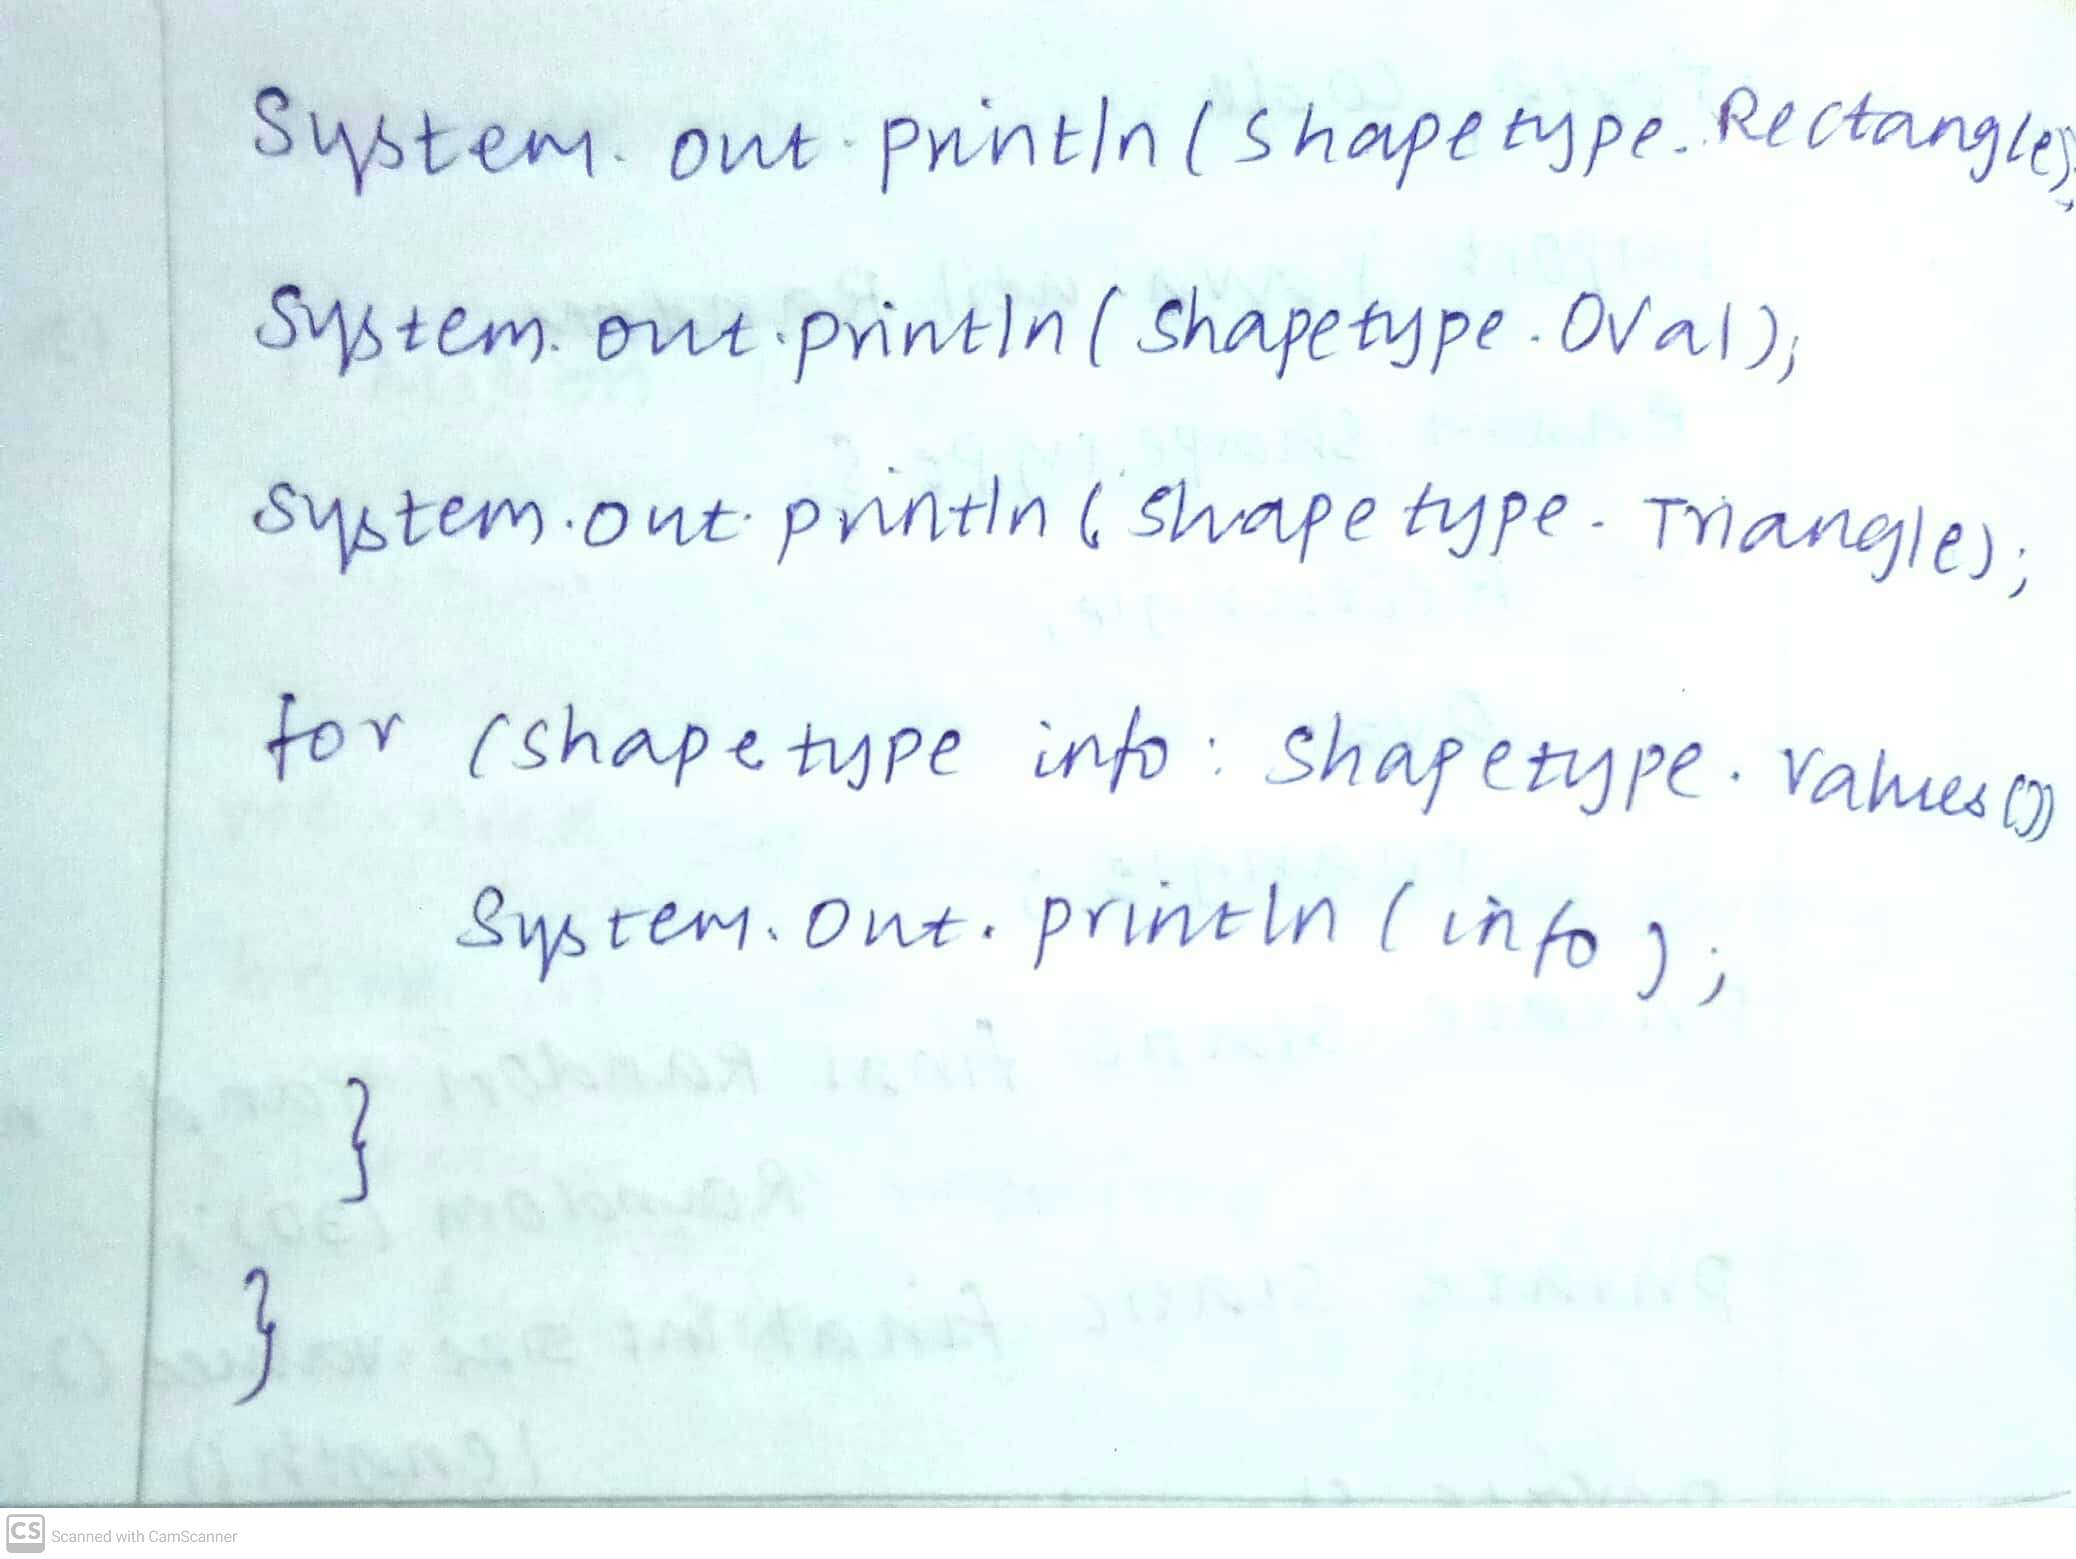 System.out.println(Shapetype.Rectangle);
System.out.println(Shapetype.Oval);
System.out.println(Shapetype.Triangle);
for (Shapetype info : Shapetype.values())
System.out.println(info);
}
}
CS Scanned with CamScanner